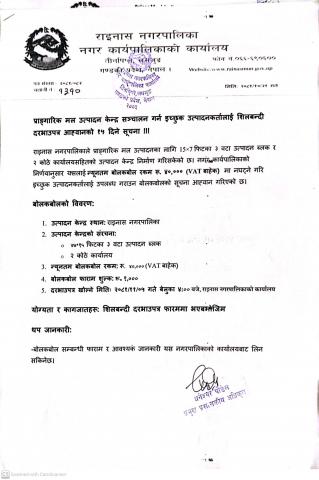 राइनास नगरपालिका
नगर कार्यपालिकाको कार्यालय
तीनपिप्ले, लमजुङ
गण्डकी प्रदेश, नेपाल ।
फोन नं.०६६-६९०६००
Website:www.rainasmun.gov.np
पत्र संख्याः- २०८१/०८२
चलानी नं. १३१०
प्राङ्गारिक मल उत्पादन केन्द्र सञ्चालन गर्न इच्छुक उत्पादनकर्तालाई शिलबन्दी
दरभाउपत्र आह्वानको १५ दिने सूचना !!!
राइनास नगरपालिकाले प्राङ्गारिक मल उत्पादनका लागि 15×7 फिटका ३ वटा उत्पादन ब्लक र
२ कोठे कार्यालयसहितको उत्पादन केन्द्र निर्माण गरिसकेको छ। नगर कार्यपालिकाको
निर्णयानुसार यसलाई न्यूनतम बोलकबोल रकम रु. ४०,००० (VAT बाहेक) मा नघट्ने गरि
इच्छुक उत्पादनकर्तालाई उपलब्ध गराउन बोलकबोलको सूचना आह्वान गरिएको छ।
बोलकबोलको विवरण:
1. उत्पादन केन्द्र स्थान: राइनास नगरपालिका
2. उत्पादन केन्द्रको संरचना:
फिटका ३ वटा उत्पादन ब्लक
२ कोठे कार्यालय
3. न्यूनतम बोलकबोल रकम: रु. ४०,०००(VAT बाहेक)
4. बोलकबोल फाराम शुल्क: रु. १,०००
5. दरभाउपत्र खोल्ने मिति: २०८१/११/०५ गते बेलुका ४:०० बजे, राइनास नगरपालिकाको कार्यालय
योग्यता र कागजातहरू: शिलबन्दी दरभाउपत्र फारममा भएबमोजिम
थप जानकारी:
-बोलकबोल सम्बन्धी फाराम र आवश्यक जानकारी यस नगरपालिकाको कार्यालयबाट लिन
सकिनेछ।